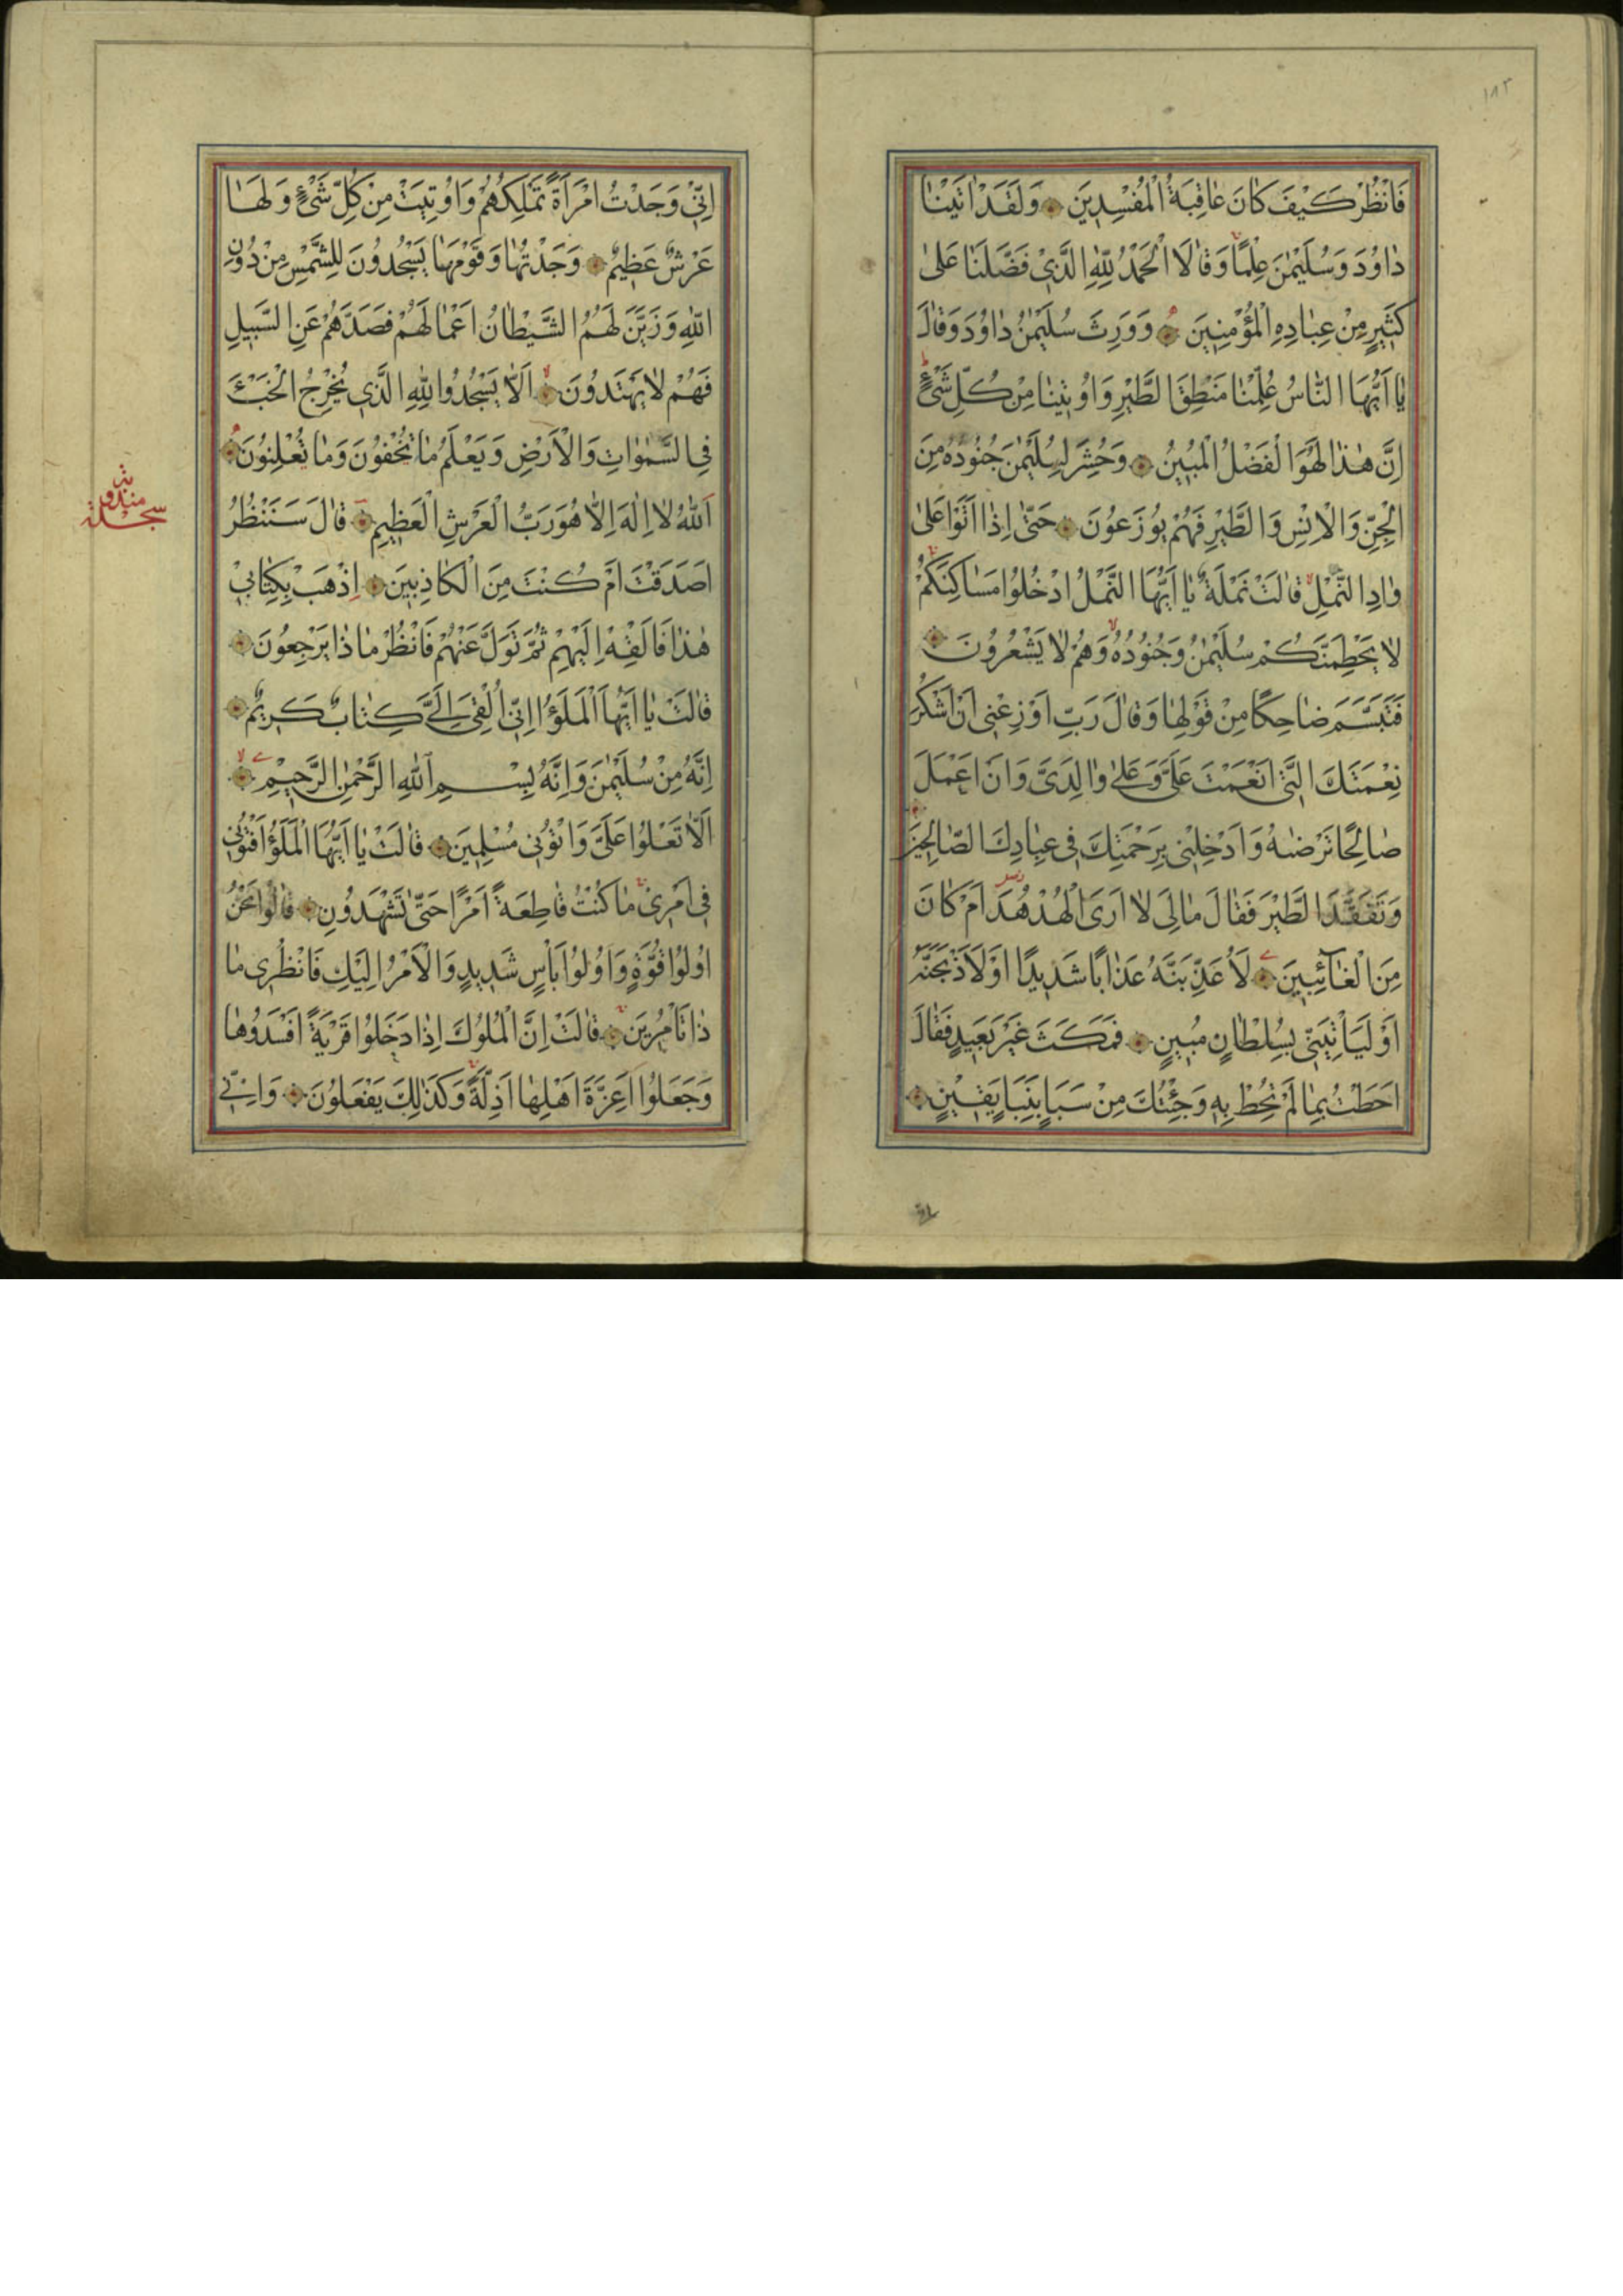 ١٨٣
فَانْظُرْ كَيْفَ كَانَ عَاقِبَةُ الْمُفْسِدِينَ وَلَقَدْ اٰتَيْنَا
دَاوُدَ وَسُلَيْمٰنَ عِلْمًا وَقَالَا الْحَمْدُ لِلّٰهِ الَّذِي فَضَّلَنَا عَلىٰ
كَثِيرٍ مِنْ عِبَادِهِ الْمُؤْمِنِينَ وَوَرِثَ سُلَيْمٰنُ دَاوُدَ وَقَالَ
يَا اَيُّهَا النَّاسُ عُلِّمْنَا مَنْطِقَ الطَّيْرِ وَاُوتِينَا مِنْ كُلِّ شَيْءٍ
اِنَّ هٰذَا لَهُوَ الْفَضْلُ الْمُبِينُ وَحُشِرَ لِسُلَيْمٰنَ جُنُودُهُ مِنَ
الْجِنِّ وَالْاِنْسِ وَالطَّيْرِ فَهُمْ يُوزَعُونَ حَتّىٰ اِذَا اَتَوْا عَلىٰ
وَادِ النَّمْلِ قَالَتْ نَمْلَةٌ يَا اَيُّهَا النَّمْلُ ادْخُلُوا مَسَاكِنَكُمْ
لَا يَحْطِمَنَّكُمْ سُلَيْمٰنُ وَجُنُودُهُ وَهُمْ لَا يَشْعُرُونَ
فَتَبَسَّمَ ضَاحِكًا مِنْ قَوْلِهَا وَقَالَ رَبِّ اَوْزِعْنِي اَنْ اَشْكُرَ
نِعْمَتَكَ الَّتِي اَنْعَمْتَ عَلَيَّ وَعَلىٰ وَالِدَيَّ وَاَنْ اَعْمَلَ
صَالِحًا تَرْضٰىهُ وَاَدْخِلْنِي بِرَحْمَتِكَ فِي عِبَادِكَ الصَّالِحِينَ
وَتَفَقَّدَ الطَّيْرَ فَقَالَ مَا لِيَ لَا اَرَى الْهُدْهُدَ اَمْ كَانَ
مِنَ الْغَآئِبِينَ لَاُعَذِّبَنَّهُ عَذَابًا شَدِيدًا اَوْ لَاَذْبَحَنَّهُ
اَوْ لَيَأْتِيَنِّي بِسُلْطَانٍ مُبِينٍ فَمَكَثَ غَيْرَ بَعِيدٍ فَقَالَ
اَحَطْتُ بِمَا لَمْ تُحِطْ بِهِ وَجِئْتُكَ مِنْ سَبَإٍ بِنَبَإٍ يَقِينٍ
اِنِّي وَجَدْتُ امْرَاَةً تَمْلِكُهُمْ وَاُوتِيَتْ مِنْ كُلِّ شَيْءٍ وَلَهَا
عَرْشٌ عَظِيمٌ وَجَدْتُهَا وَقَوْمَهَا يَسْجُدُونَ لِلشَّمْسِ مِنْ دُونِ
اللّٰهِ وَزَيَّنَ لَهُمُ الشَّيْطَانُ اَعْمَالَهُمْ فَصَدَّهُمْ عَنِ السَّبِيلِ
فَهُمْ لَا يَهْتَدُونَ اَلَّا يَسْجُدُوا لِلّٰهِ الَّذِي يُخْرِجُ الْخَبْءَ
فِي السَّمٰوَاتِ وَالْاَرْضِ وَيَعْلَمُ مَا تُخْفُونَ وَمَا تُعْلِنُونَ
اَللّٰهُ لَا اِلٰهَ اِلَّا هُوَ رَبُّ الْعَرْشِ الْعَظِيمِ قَالَ سَنَنْظُرُ
اَصَدَقْتَ اَمْ كُنْتَ مِنَ الْكَاذِبِينَ اِذْهَبْ بِكِتَابِي
هٰذَا فَاَلْقِهْ اِلَيْهِمْ ثُمَّ تَوَلَّ عَنْهُمْ فَانْظُرْ مَاذَا يَرْجِعُونَ
قَالَتْ يَا اَيُّهَا الْمَلَؤُا اِنِّي اُلْقِيَ اِلَيَّ كِتَابٌ كَرِيمٌ
اِنَّهُ مِنْ سُلَيْمٰنَ وَاِنَّهُ بِسْمِ اللّٰهِ الرَّحْمٰنِ الرَّحِيمِ
اَلَّا تَعْلُوا عَلَيَّ وَاْتُونِي مُسْلِمِينَ قَالَتْ يَا اَيُّهَا الْمَلَؤُا اَفْتُونِي
فِي اَمْرِي مَا كُنْتُ قَاطِعَةً اَمْرًا حَتّىٰ تَشْهَدُونِ قَالُوا نَحْنُ
اُولُوا قُوَّةٍ وَاُولُوا بَأْسٍ شَدِيدٍ وَالْاَمْرُ اِلَيْكِ فَانْظُرِي مَا
ذَا تَأْمُرِينَ قَالَتْ اِنَّ الْمُلُوكَ اِذَا دَخَلُوا قَرْيَةً اَفْسَدُوهَا
وَجَعَلُوا اَعِزَّةَ اَهْلِهَا اَذِلَّةً وَكَذٰلِكَ يَفْعَلُونَ وَاِنِّي
سجدة